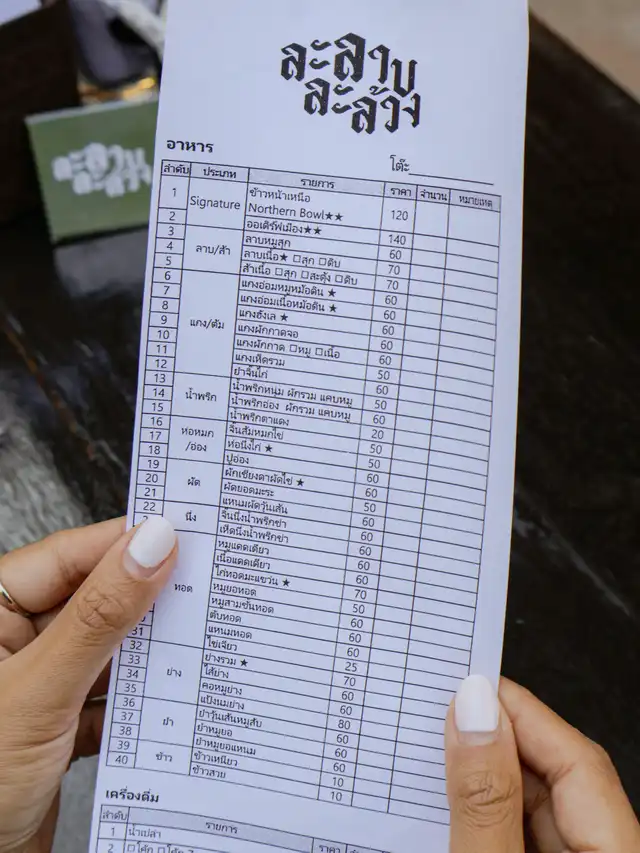 ละลาบ
ละล้วง
ละลาบ
ละล้วง
อาหาร
โต๊ะ
ลำดับ ประเภท รายการ ราคา จำนวน หมายเหตุ
1 Signature ข้าวหน้าเหนือ
Northern Bowl★★ 120
2 ออเดิร์ฟเมือง★★ 140
3 ลาบ/ส้า ลาบหมูสุก 60
4 ลาบเนื้อ★ □สุก □ดิบ 70
5 ส้าเนื้อ □สุก □สะดุ้ง □ดิบ 70
6 แกง/ต้ม แกงอ่อมหมูหม้อดิน ★ 60
7 แกงอ่อมเนื้อหม้อดิน ★ 60
8 แกงฮังเล ★ 60
9 แกงผักกาดจอ 60
10 แกงผักกาด □หมู □เนื้อ 60
11 แกงเห็ดรวม 50
12 ยำจิ้นไก่ 60
13 น้ำพริก น้ำพริกหนุ่ม ผักรวม แคบหมู 50
14 น้ำพริกอ่อง ผักรวม แคบหมู 60
15 น้ำพริกตาแดง 20
16 ห่อหมก/อ่อง จิ้นส้มหมกไข่ 50
17 ห่อนึ่งไก่ ★ 50
18 ปูอ่อง 60
19 ผัด ผักเชียงดาผัดไข่ ★ 60
20 ผัดยอดมะระ 50
21 แหนมผัดวุ้นเส้น 60
22 นึ่ง จิ้นนึ่งน้ำพริกข่า 60
เห็ดนึ่งน้ำพริกข่า 60
ทอด หมูแดดเดียว 60
เนื้อแดดเดียว 70
ไก่ทอดมะแขว่น ★ 50
หมูยอทอด 60
หมูสามชั้นทอด 60
ตับทอด 60
แหนมทอด 60
31 ไข่เจียว 25
32 ย่าง ย่างรวม ★ 70
33 ไส้ย่าง 60
34 คอหมูย่าง 80
35 แป้งนมย่าง 60
36 ยำ ยำวุ้นเส้นหมูสับ 60
37 ยำหมูยอ 60
38 ยำหมูยอแหนม 60
39 ข้าว ข้าวเหนียว 10
40 ข้าวสวย 10
เครื่องดื่ม
ลำดับ รายการ ราคา
1 น้ำเปล่า
2 □โค้ก